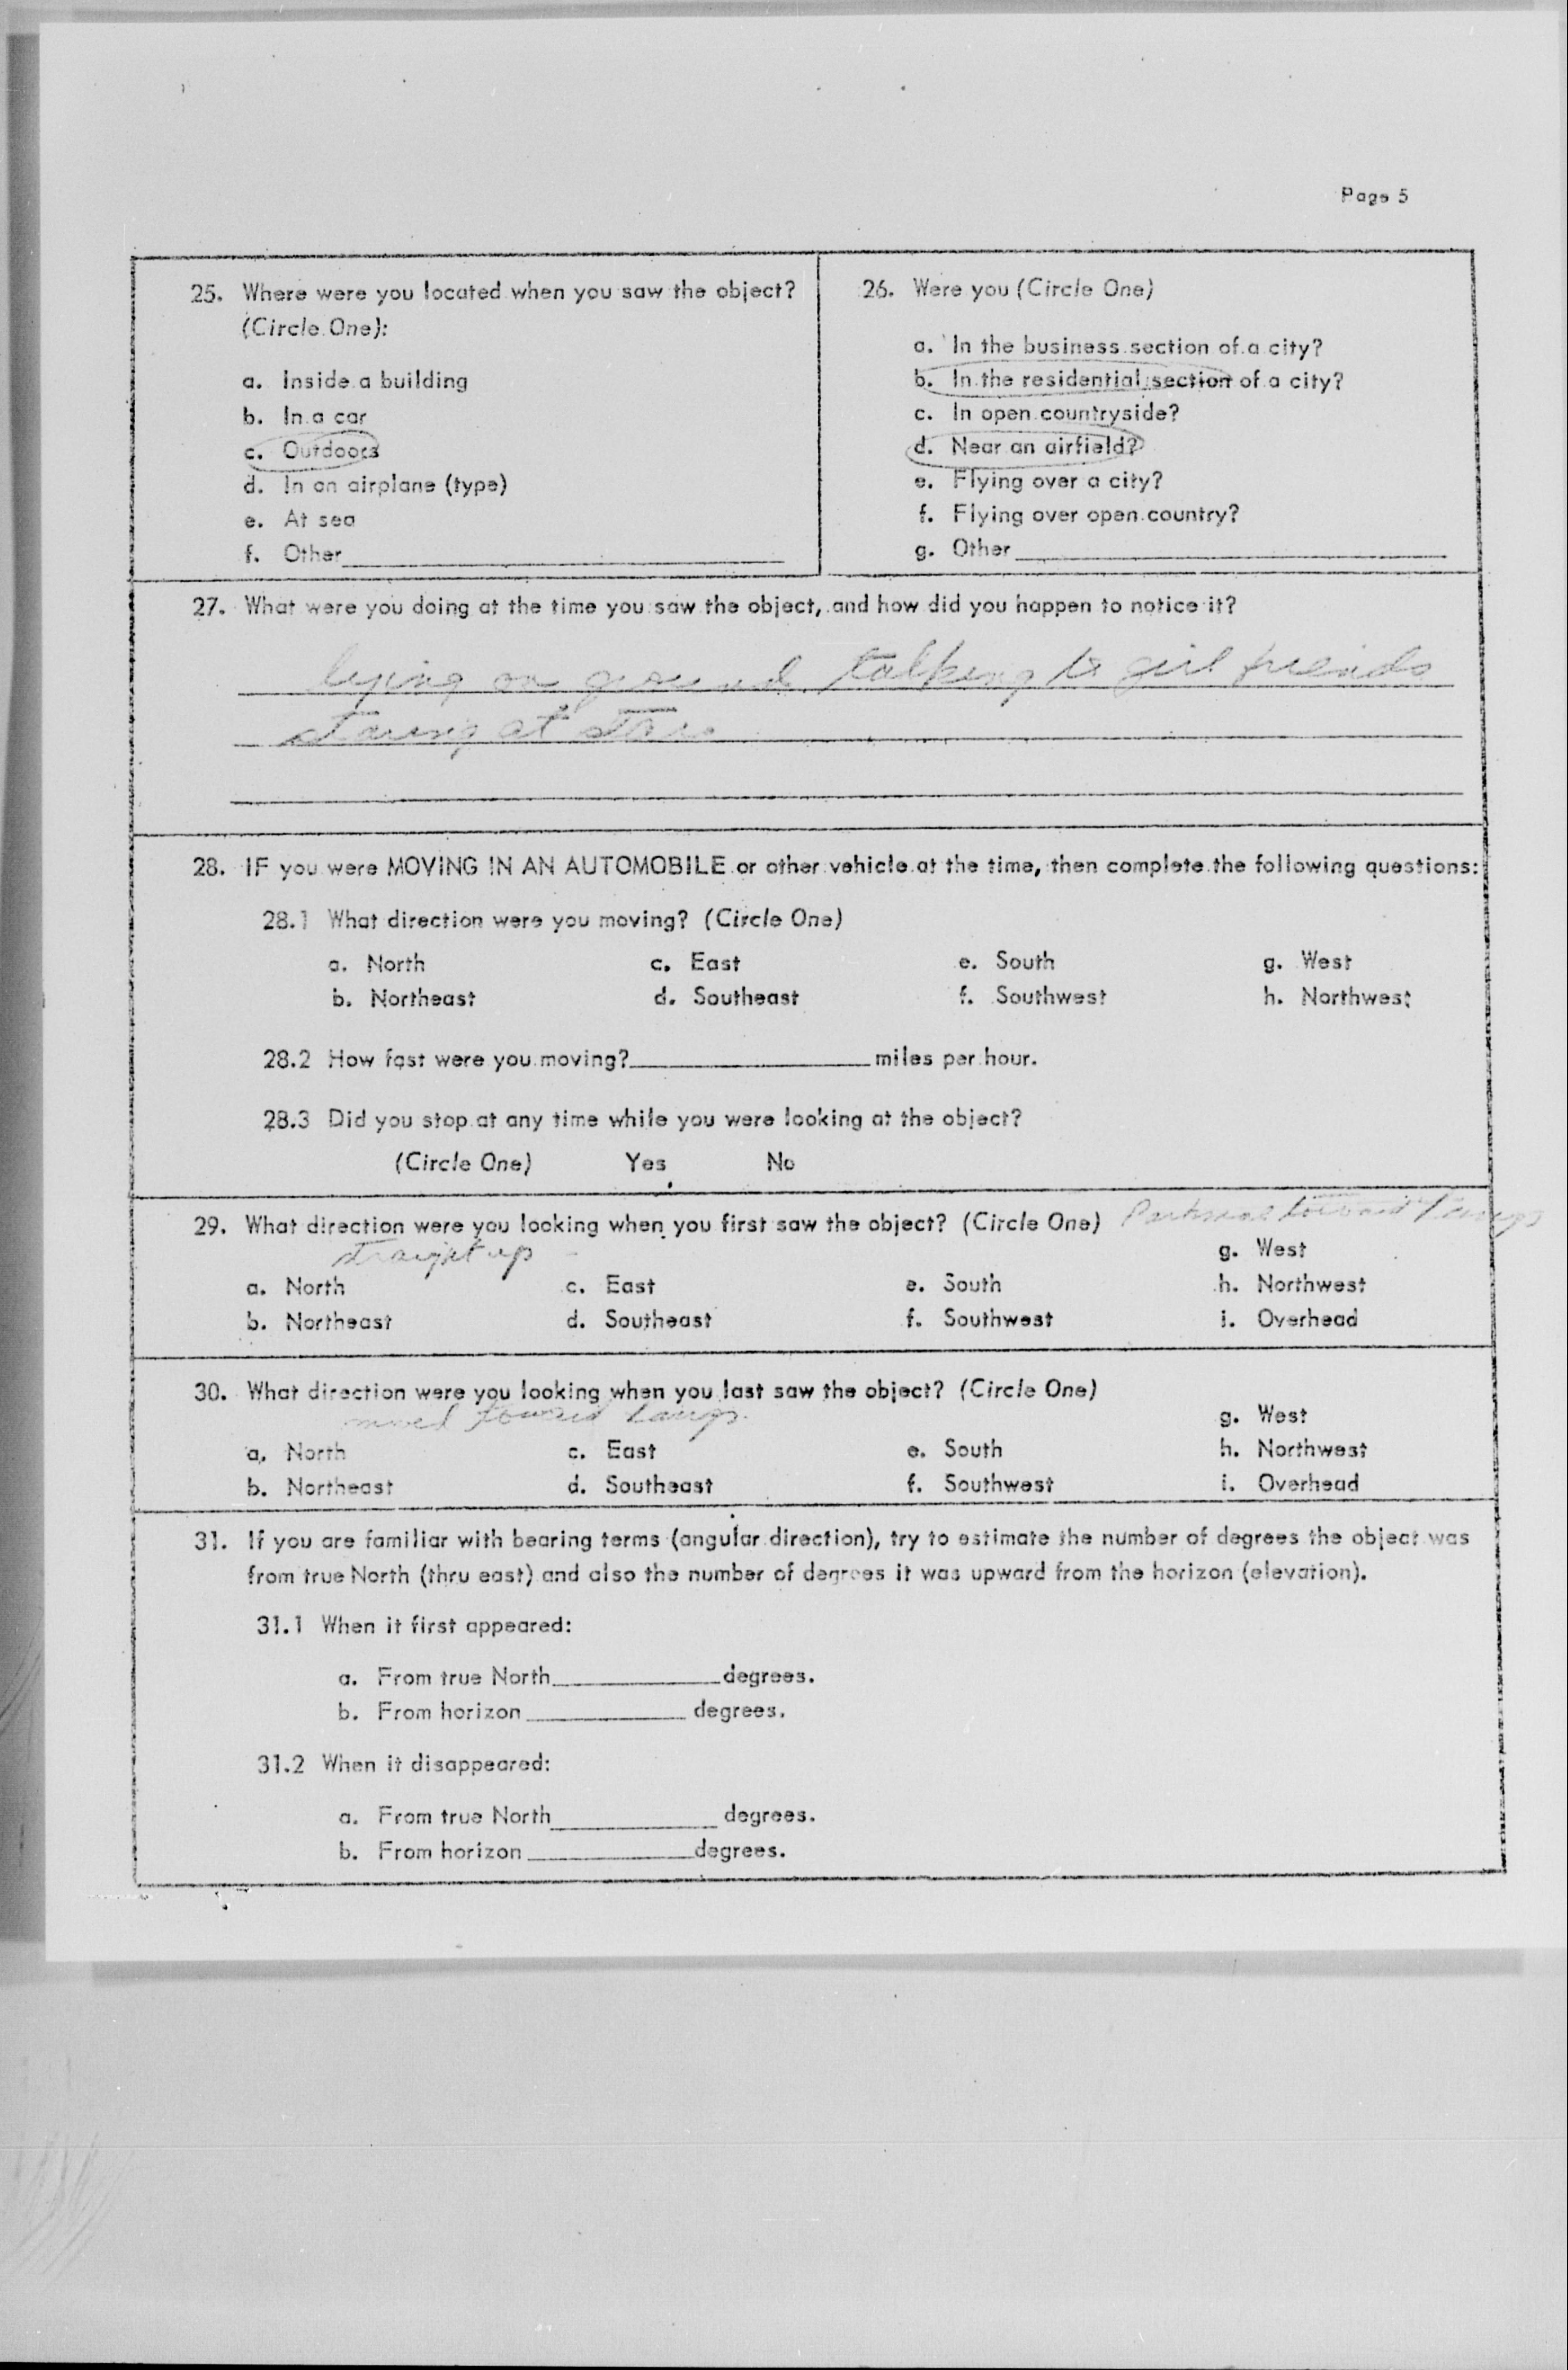 Page 5
25. Where were you located when you saw the object?
(Circle One):
a. Inside a building
b. In a car
c. Outdoors
d. In an airplane (type)
e. At sea
f. Other
26. Were you (Circle One)
a. In the business section of a city?
b. In the residential section of a city?
c. In open countryside?
d. Near an airfield?
e. Flying over a city?
f. Flying over open country?
g. Other
27. What were you doing at the time you saw the object, and how did you happen to notice it?
lying on ground talking to girl friends
staring at stars
28. IF you were MOVING IN AN AUTOMOBILE or other vehicle at the time, then complete the following questions:
28.1 What direction were you moving? (Circle One)
a. North c. East e. South g. West
b. Northeast d. Southeast f. Southwest h. Northwest
28.2 How fast were you moving? miles per hour.
28.3 Did you stop at any time while you were looking at the object?
(Circle One) Yes No
29. What direction were you looking when you first saw the object? (Circle One) toward
straight up g. West
a. North c. East e. South h. Northwest
b. Northeast d. Southeast f. Southwest i. Overhead
30. What direction were you looking when you last saw the object? (Circle One)
moved toward g. West
a. North c. East e. South h. Northwest
b. Northeast d. Southeast f. Southwest i. Overhead
31. If you are familiar with bearing terms (angular direction), try to estimate the number of degrees the object was
from true North (thru east) and also the number of degrees it was upward from the horizon (elevation).
31.1 When it first appeared:
a. From true North degrees.
b. From horizon degrees.
31.2 When it disappeared:
a. From true North degrees.
b. From horizon degrees.